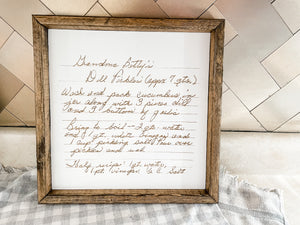 Grandma Betty's
Dill Pickles (appx 7 qts.)
Wash and pack cucumbers in
jar along with 3 pieces dill
and 1 button of garlic
Bring to boil - 2 qts. water,
and 1 qt. white vinegar and
1 cup pickling salt. Pour over
pickles and seal
Half recipe: 1 qt. water,
1 pt. vinegar, ½ c. salt